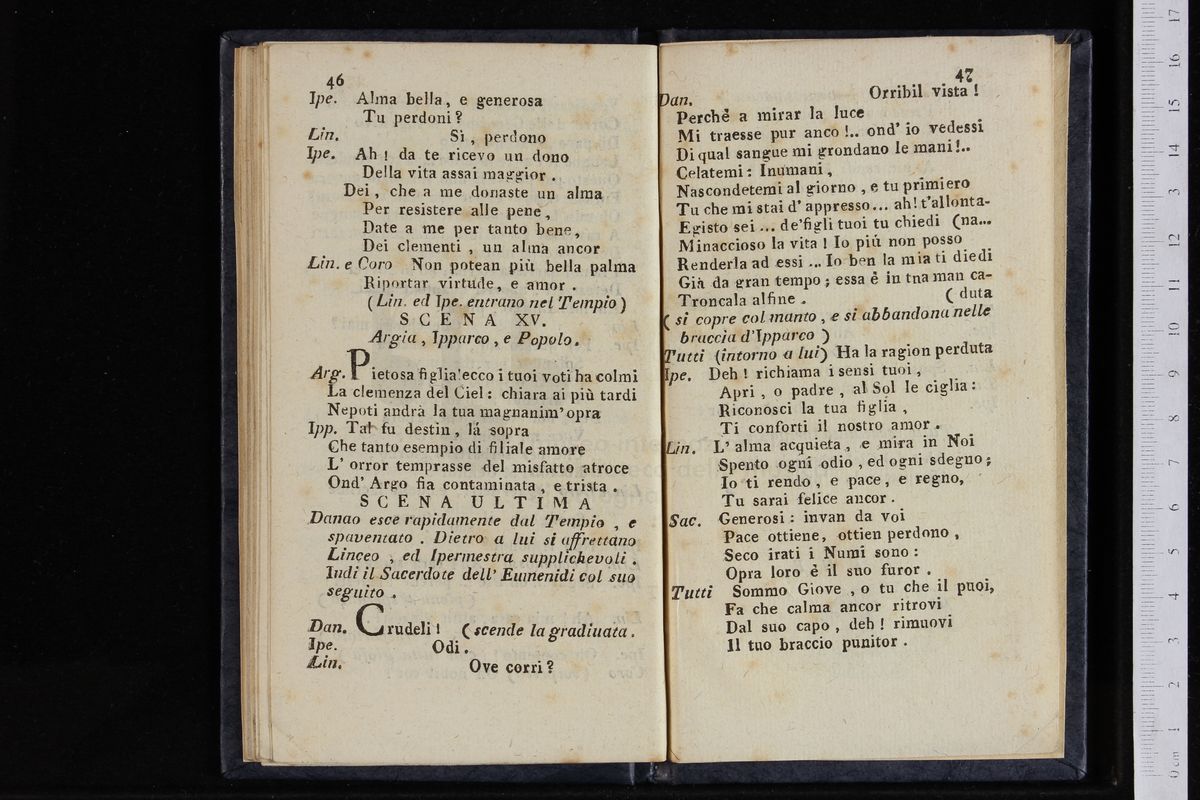 46
Ipe. Alma bella, e generosa
Tu perdoni?
Lin. Sì, perdono
Ipe. Ah! da te ricevo un dono
Della vita assai maggior.
Dei, che a me donaste un alma
Per resistere alle pene,
Date a me per tanto bene,
Dei clementi, un alma ancor
Lin. e Coro Non potean più bella palma
Riportar virtude, e amor.
(Lin. ed Ipe. entrano nel Tempio)
SCENA XV.
Argia, Ipparco, e Popolo.
Arg. Pietosa figlia! ecco i tuoi voti ha colmi
La clemenza del Ciel: chiara ai più tardi
Nepoti andrà la tua magnanim' opra
Ipp. Tal fu destin, là sopra
Che tanto esempio di filiale amore
L' orror temprasse del misfatto atroce
Ond' Argo fia contaminata, e trista.
SCENA ULTIMA
Danao esce rapidamente dal Tempio, e
spaventato. Dietro a lui si affrettano
Linceo, ed Ipermestra supplichevoli.
Indi il Sacerdote dell' Eumenidi col suo
seguito.
Dan. Crudeli! (scende la gradiuata.
Ipe. Odi.
Lin. Ove corri?
47
Dan. Orribil vista!
Perchè a mirar la luce
Mi traesse pur anco!.. ond' io vedessi
Di qual sangue mi grondano le mani!..
Celatemi: Inumani,
Nascondetemi al giorno, e tu primiero
Tu che mi stai d' appresso... ah! t'allonta-
Egisto sei... de' figli tuoi tu chiedi (na...
Minaccioso la vita! Io più non posso
Renderla ad essi... Io ben la mia ti diedi
Già da gran tempo; essa è in tna man ca-
Troncala alfine. (duta
(si copre col manto, e si abbandona nelle
braccia d'Ipparco)
Tutti (intorno a lui) Ha la ragion perduta
Ipe. Deh! richiama i sensi tuoi,
Apri, o padre, al Sol le ciglia:
Riconosci la tua figlia,
Ti conforti il nostro amor.
Lin. L' alma acquieta, e mira in Noi
Spento ogni odio, ed ogni sdegno;
Io ti rendo, e pace, e regno,
Tu sarai felice ancor.
Sac. Generosi: invan da voi
Pace ottiene, ottien perdono,
Seco irati i Numi sono:
Opra loro è il suo furor.
Tutti Sommo Giove, o tu che il puoi,
Fa che calma ancor ritrovi
Dal suo capo, deh! rimuovi
Il tuo braccio punitor.
0 cm 1 2 3 4 5 6 7 8 9 10 11 12 13 14 15 16 17